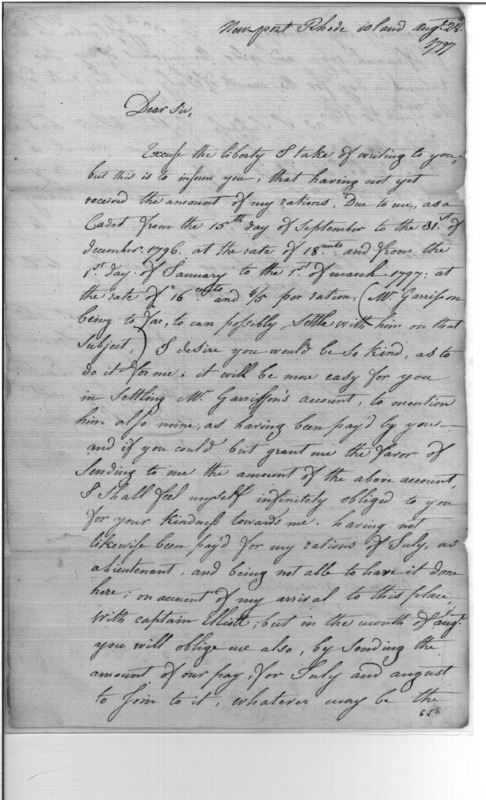 Newport Rhode island augt. 24th.
1797
Dear Sir,
Excuse the liberty I take of writing to you,
but this is to inform you, that having not yet
received the amount of my rations, Due to me, as a
Cadet from the 15th day of September to the 31st of
december 1796. at the rate of 18 cents and from the
1st. day. of January to the 1st of march 1797: at
the rate of 16 cents and 4/5 per ration, (Mr. Garrisson
being to far, to can possibly, Settle with him on that
Subject,) I desire you would be so kind, as to
do it for me; it will be more easy for you
in Settling Mr. Garrisson's account, to mention
him also mine, as having been pay'd by you
and if you could but grant me the favor of
Sending to me the amount of the above account,
I Shall feel myself infinitely obliged to you
for your kindness towards me. having not
likewise been pay'd for my rations of July, as
a lieutenant, and being not able to have it done
here; on account of my arrival to this place
With captain Elliott; but in the month of augt.
you will oblige me also, by Sending the
amount of our pay, for July and august
to Join to it, whatever may be the